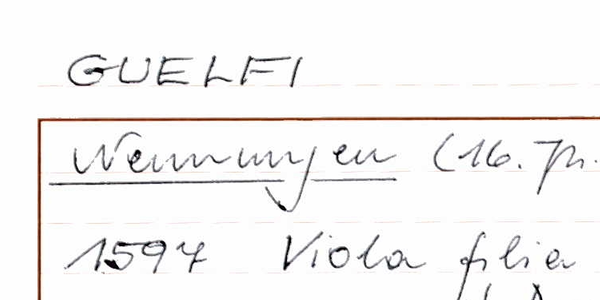 GUELFI
Nennungen (16. Jh.
1597 Viola filia